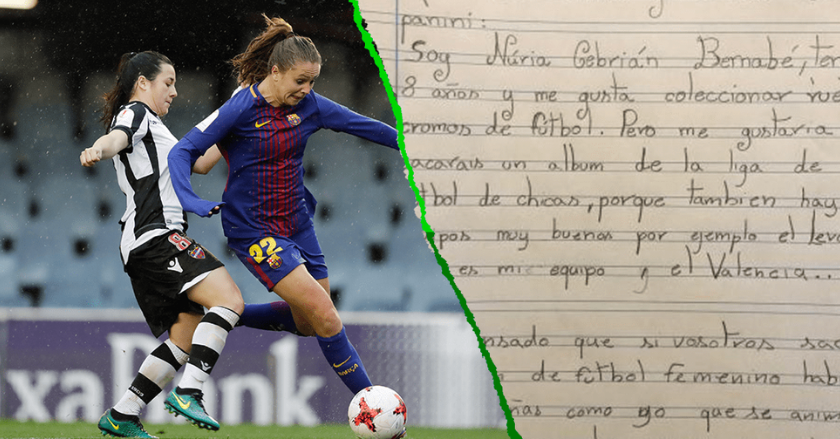 panini:
Soy Núria Cebrián Bernabé, ten
8 años y me gusta coleccionar vues
cromos de fútbol. Pero me gustaria
acarais un album de la liga de
tbol de chicas, porque tambien hay
pos muy buenos por ejemplo el leva
es mi equipo y el Valencia...
nsado que si vosotros sac
de fútbol femenino hab
ñas como yo que se anim
8
22
BARÇA
xaBank